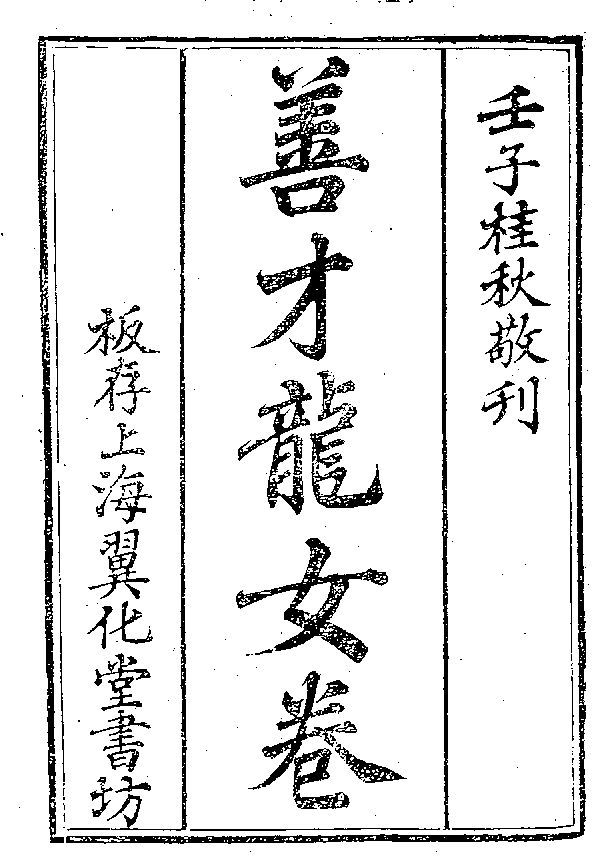 壬子桂秋敬刊
善才龍女卷
板存上海翼化堂書坊